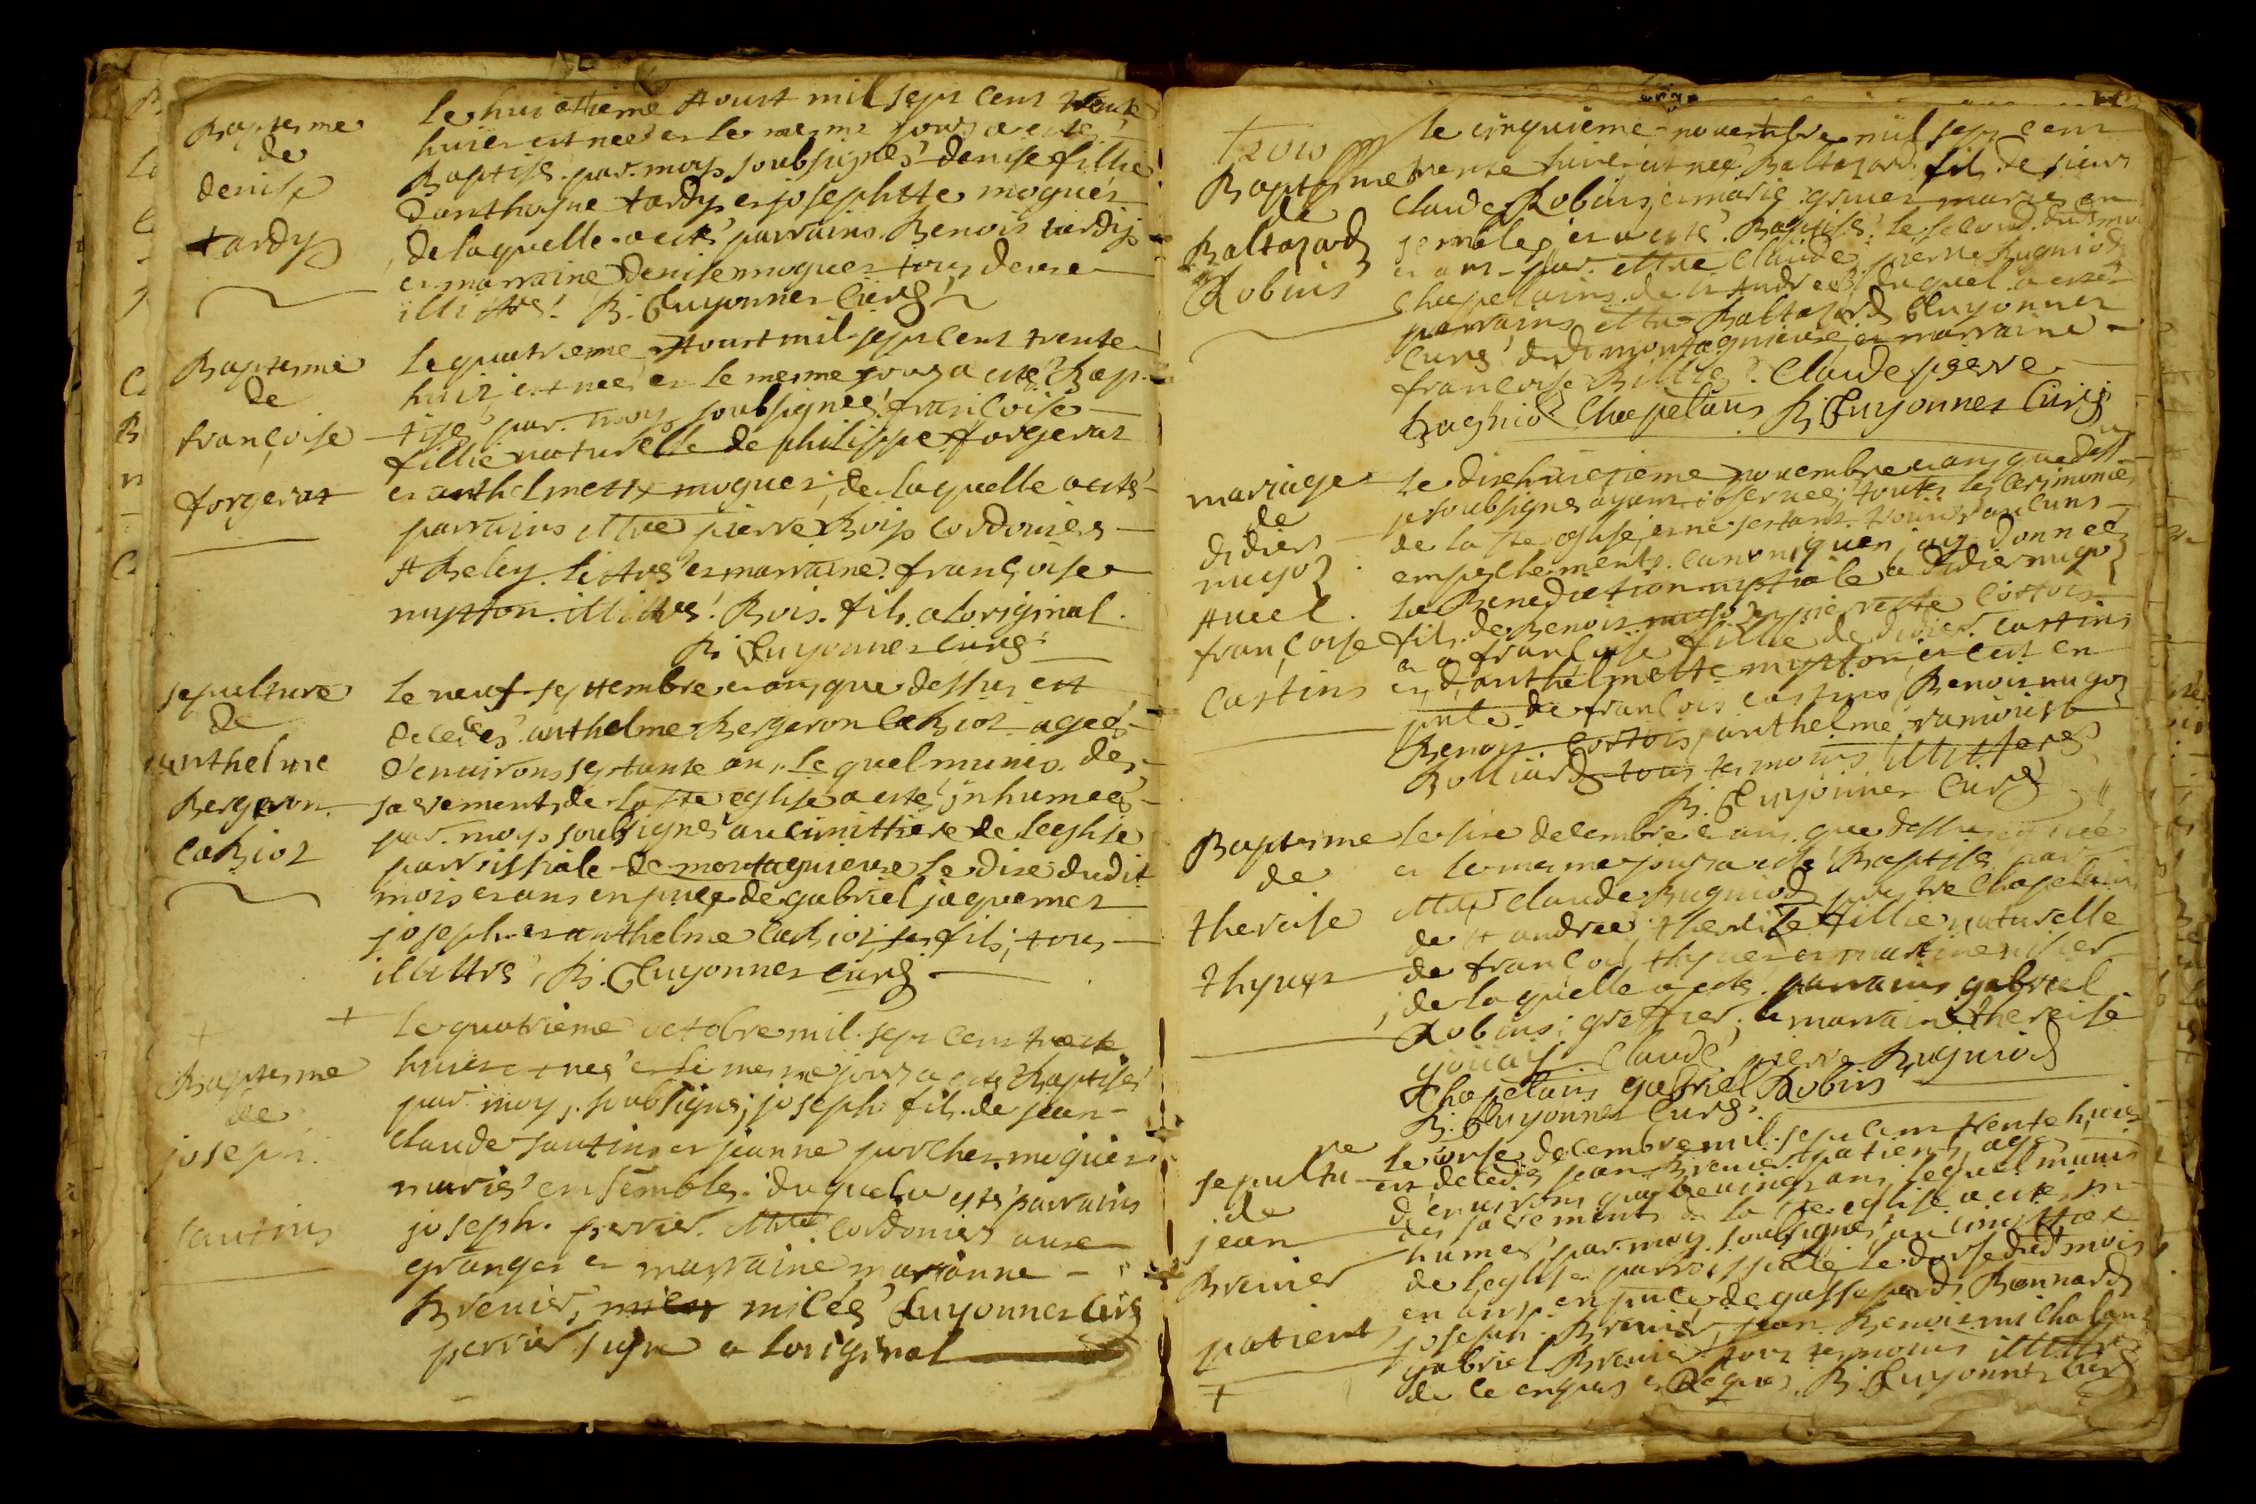 Baptesme
de
denise
tardy
le huictieme Aoust mil sept cent trente
huict est née et le mesme jour a esté
Baptisé par moy soubsigné denise fillie
danthoyne tardy et josephtte moguet
de laquelle a esté parrains Benois tardy
et marraine denise moguet tous deux
illittré. B. Guyonnet Curé
Baptesme
de
françoise
forgerat
le quatrieme Aoust mil sept cent trente
huit est née et le mesme jour a esté Bap
tisé par moy soubsigné françoise
fillie naturelle de philippe forgerat
et anthelmette moguet, de laquelle a esté
parrains Mtre pierre Bois Cordonier
A Beley et marraine françoise
nyston illitré. Bois fils a loriginal.
B. Guyonnet Curé
sepulture
de
anthelme
Bergeron
Cahiot
le neuf septembre et an que dessus est
decedés anthelme Bergeron Cahiot aged
denvirons septante an, lequel munis des
sacrements de la ste eglise a esté inhumeé
par moy soubsigné au cimittiere de leglise
parrissiale de montagnieux le dixe dudit
mois et ans en pnce de gabriel jaquemet
joseph et anthelme Cahiot ses fils, tous
illittré, B. Guyonnet Curé
Baptesme
de
joseph
santins
le quatrieme octobre mil sept cent trente
huict est né et le mesme jour a esté Baptisé
par moy soubsigné, joseph fils de jean
Claude santins et jeanne porcher moguiet
mariés ensembles. duquel a esté parrains
joseph perrier Mtre Cordonier aux
granges et marraine marianne
Brenier, milés Guyonnet Curé
perrier signe a loriginal
Baptesme
de
Baltazard
Robins
le cinquieme novembre mil sept cent
trente huict est neé Baltazard fils de sieur
Claude Robins et marie gruet mariés en
sembles et a esté Baptisé le second dud moi
et ans par Mtre Claude pierre Rugniod
Chapelains de st Andreé duquel a esté
parrains Mtre Baltazard Guyonnet
Curé dud montagnieux et marraine
françoise Billie. Claude pierre
Rugniod Chapelains B. Guyonnet Curé
mariage
de
didiers
nugoz
Avec
françoise
Castins
le dixhuictieme novembre et ans que dess
je soubsigne ayant observée toutes les cerimonies
de la ste eglise, et ne sestant trouvé aulcuns
empechements canoniques, ay donneé
la Benediction nuptiale a didier nugoz
fils de Benois nugoz et pierrette Costois
et a françoise fillie de didier Castins
et danthelmette nyston, et cest en
pnce de françois castins, Benois nugoz
Benois Costois, anthelme ramouist
Bolliard tous temoins illitterés
B. Guyonnet Curé
Baptesme
de
thereise
thynet
le sixe decembre et ans que dessus est née
et le mesme jour a esté Baptisé par
Mtre Claude Rugniod pretre Chapelains
de st andreé, thereise fillie naturelle
de françois thynet et
de laquelle a esté parrains gabriel
Robins, greffier, et marraine thereise
Claude pierre Rugniod
Chapelains gabriel Robins
B. Guyonnet Curé.
sepultu re
de
jean
Brenier
patient
le onse decembre mil sept cent trente huict
est decedés jean Brenier patient, agé
denvirons quatre vingt ans, lequel munis
des sacrements de la ste eglise a esté in
humé par moy soubsigné au cimittiere
de leglise parroissialle, le douse dudt mois
et ans en pnce de gasspard Bonnard
joseph Brenier, jean Benois michalons
gabriel Brenier tous temoins illittré
de ce enquis et requis. B. Guyonnet Curé